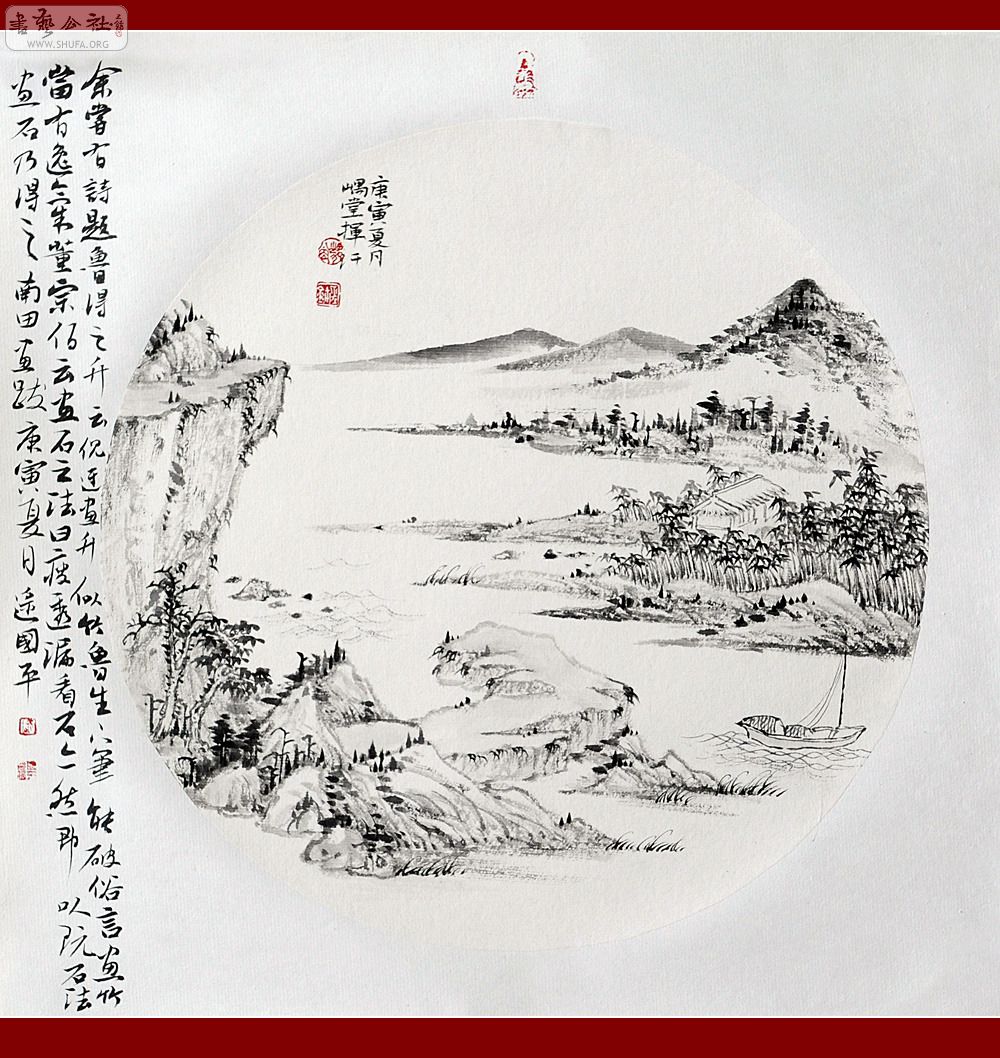 書藝公社
WWW.SHUFA.ORG
庚寅夏月
嵎堂揮汗
余嘗有詩題魯得之竹云倪迂畫竹似竹魯生下筆能破俗言畫竹
當有逸氣董宗伯云畫石之法曰瘦透漏看石亦然即以玩石法
畫石乃得之南田畫跋庚寅夏日國平